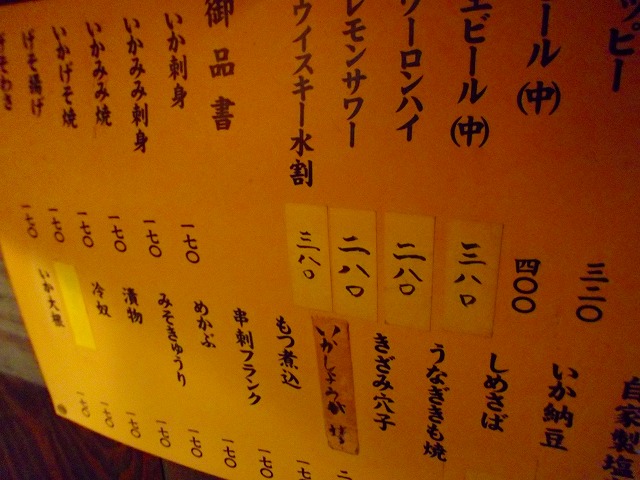 ッピー
三二〇
ール(中)
四〇〇
エビール(中)
三八〇
ウーロンハイ
二八〇
レモンサワー
二八〇
ウイスキー水割
三八〇
御品書
いか刺身
一七〇
いかみみ刺身
一七〇
いかみみ焼
一七〇
いかげそ焼
一七〇
げそ揚げ
一七〇
げそわさ
一七〇
自家製塩
いか納豆
しめさば
うなぎきも焼
きざみ穴子
もつ煮込
一七〇
串刺フランク
一七〇
めかぶ
一七〇
みそきゅうり
一七〇
漬物
一七〇
冷奴
一七〇
一七〇